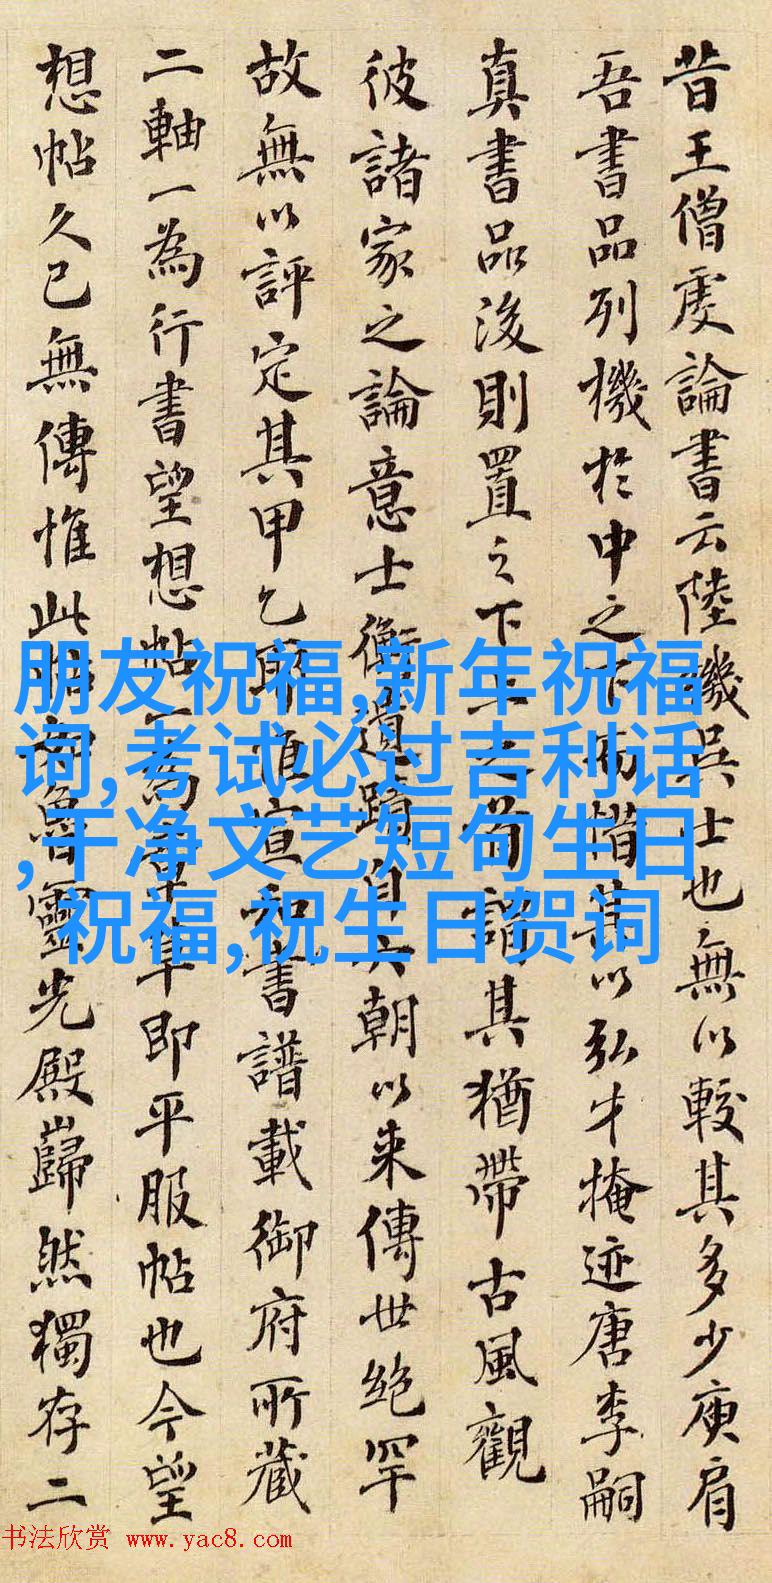 昔王僧虔論書云陸機吳士也無以較其多少庾肩
吾書品列機於中之下而惜其以弘才掩迹唐李嗣
真書品後則置之下上之首謂其猶帶古風觀
彼諸家之論意士衡遺蹟自六朝以来傳世絶罕
故無以評定其甲乙耶惟宣和書譜載御府所藏
二軸一為行書望想帖一為章草即平服帖也今望
想帖久已無傳惟此帖如魯靈光殿巋然獨存二
朋友祝福,新年祝福
词,考试必过吉利话
,干净文艺短句生日
祝福,祝生日贺词
书法欣赏 www.yac8.com